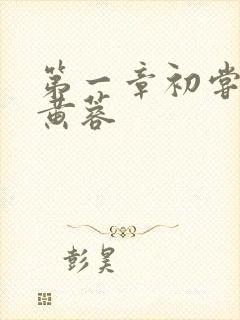 第一章初尝
黄蓉
彭昊